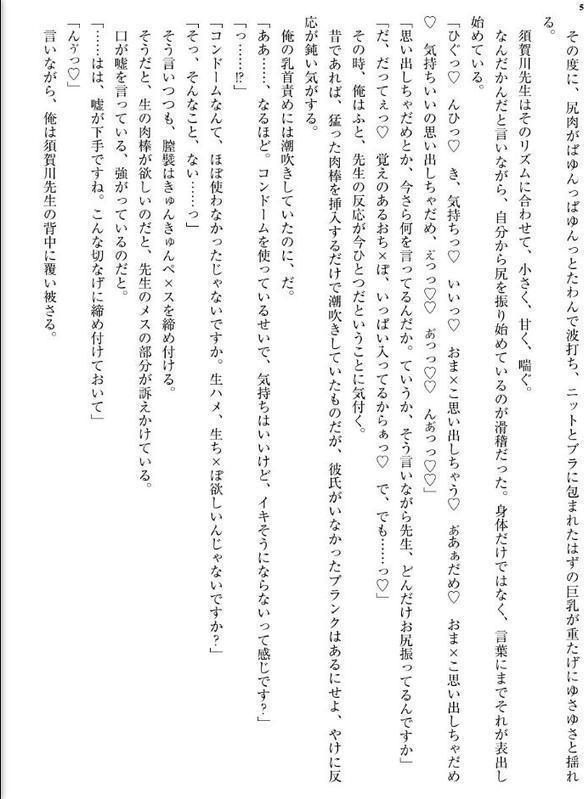 5
その度に、尻肉がばゆんっぱゆんっとたわんで波打ち、ニットとブラに包まれたはずの巨乳が重たげにゆさゆさと揺れ
る。
須賀川先生はそのリズムに合わせて、小さく、甘く、喘ぐ。
なんだかんだと言いながら、自分から尻を振り始めているのが滑稽だった。身体だけではなく、言葉にまでそれが表出し
始めている。
「ひぐっ♡　んひっ♡　き、気持ちっ♡　いいっ♡　おま×こ思い出しちゃう♡　ぁ゙あぁだめ♡　おま×こ思い出しちゃだめ
♡　気持ちいいの思い出しちゃだめ、えっっ♡♡　ぁ゙っっ♡♡　んぁ゙っっ♡♡」
「思い出しちゃだめとか、今さら何を言ってるんだか。ていうか、そう言いながら先生、どんだけお尻振ってるんですか」
「だ、だってぇっ♡　覚えのあるおち×ぽ、いっぱい入ってるからぁっ♡　で、でも……っ♡」
その時、俺はふと、先生の反応が今ひとつだということに気付く。
昔であれば、猛った肉棒を挿入するだけで潮吹きしていたものだが、彼氏がいなかったブランクはあるにせよ、やけに反
応が鈍い気がする。
俺の乳首責めには潮吹きしていたのに、だ。
「ああ……、なるほど。コンドームを使っているせいで、気持ちはいいけど、イキそうにならないって感じです？」
「っ……!?」
「コンドームなんて、ほぼ使わなかったじゃないですか。生ハメ、生ち×ぽ欲しいんじゃないですか？」
「そっ、そんなこと、ない……っ」
そう言いつつも、膣襞はきゅんきゅんペ×スを締め付ける。
そうだと、生の肉棒が欲しいのだと、先生のメスの部分が訴えかけている。
口が嘘を言っている、強がっているのだと。
「……はは、嘘が下手ですね。こんな切なげに締め付けておいて」
「んぅ゙っ♡」
言いながら、俺は須賀川先生の背中に覆い被さる。